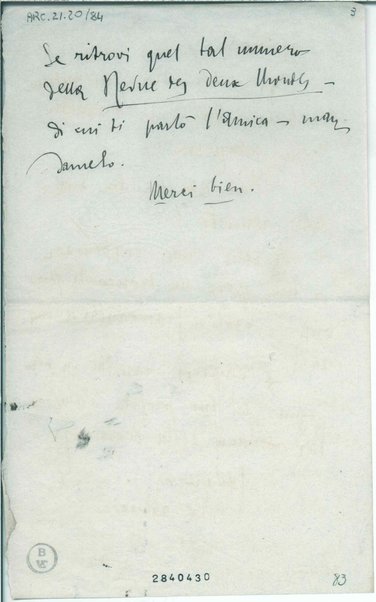 ARC.21.20/84
3
Se ritrovi quel tal numero
della Revue des deux Mondes –
di cui ti parlò l'Amica – man
damelo.
Merci bien.
B
2840430
83